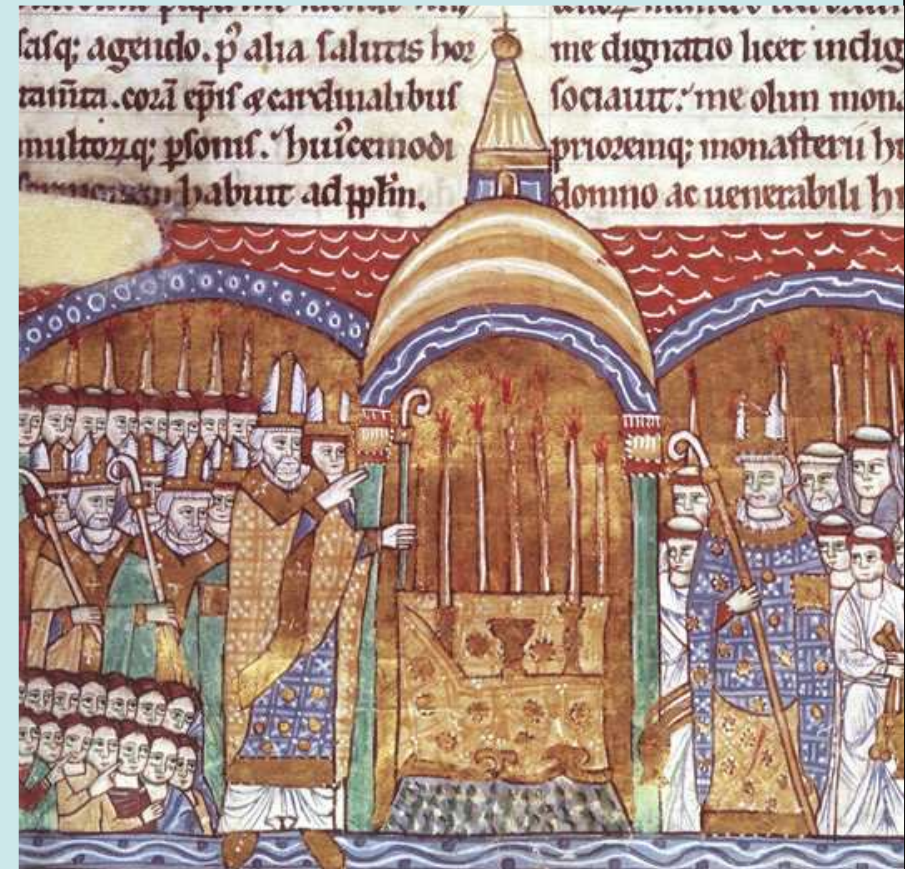 sasq; agendo. p̄ alia salutis hor
tam̄ta. corā ep̄is & cardinalibus
multorꝝq; p̄sonis. huꝰcemodi
habuit ad pp̄lm.
me dignatio licet indig
sociauit. me olim mona
prioremq; monasterii hu
domno ac uenerabili hu